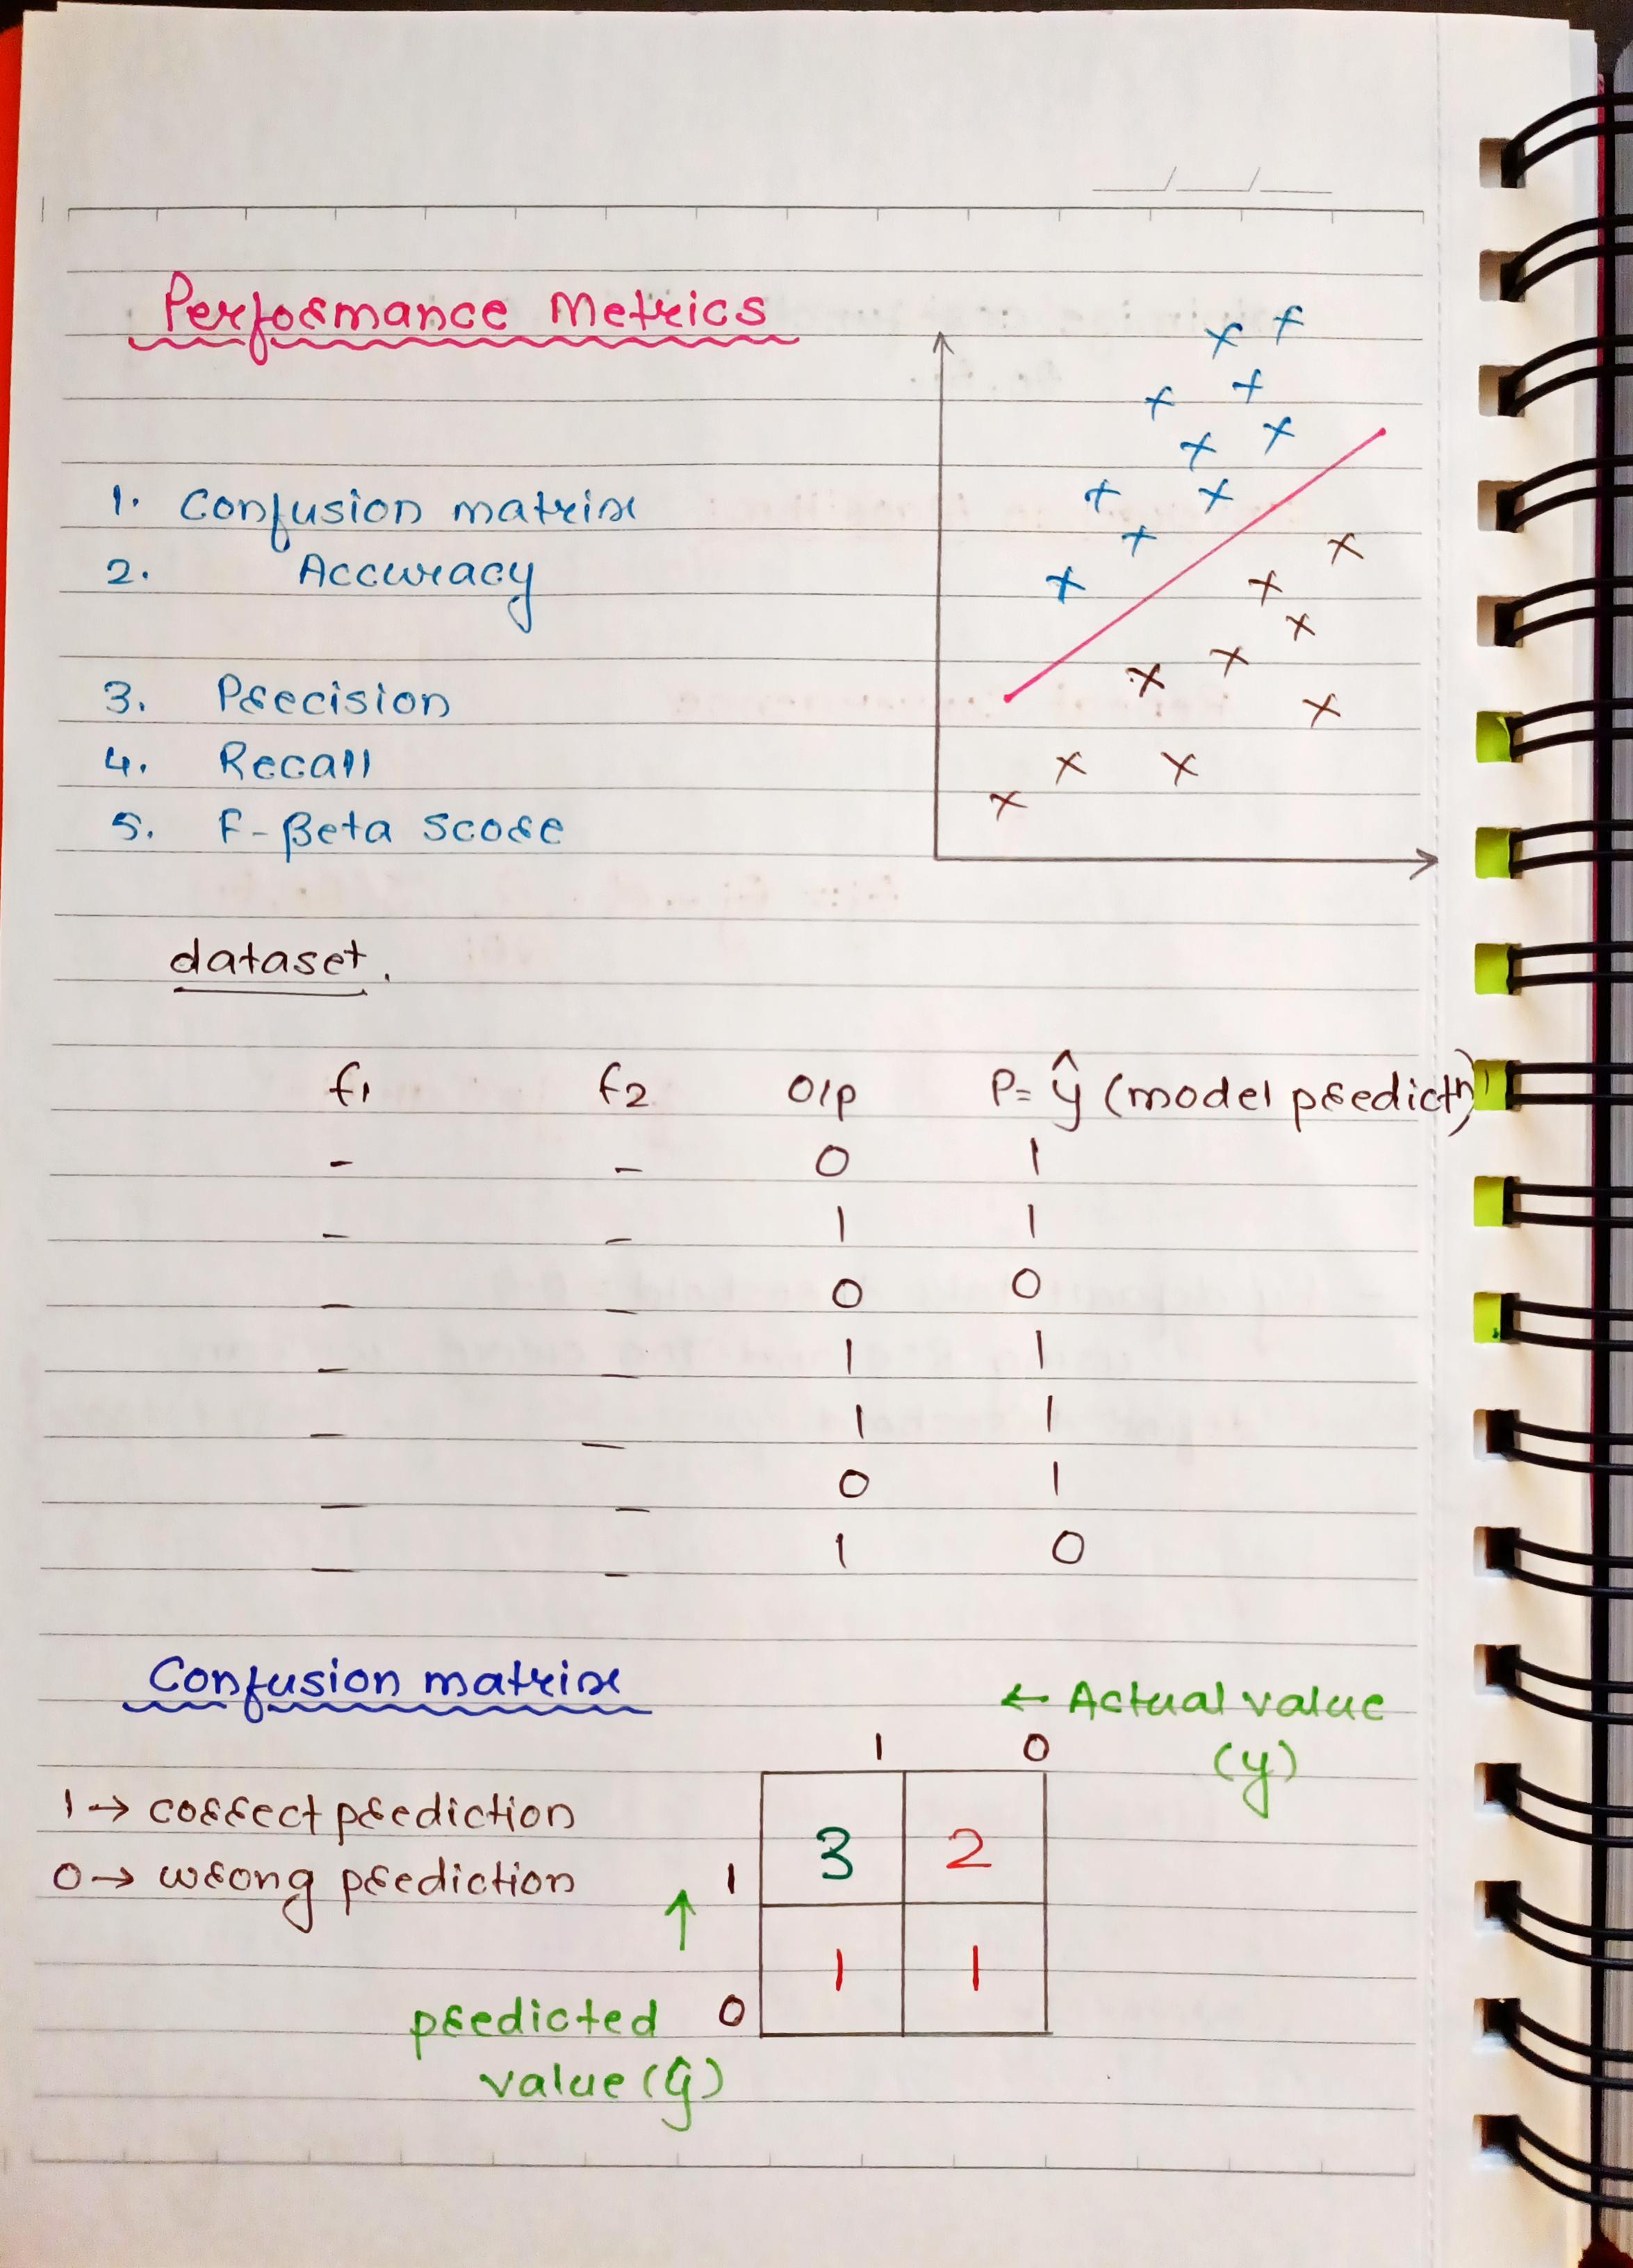 Performance Metrics
1. Confusion matrix
2. Accuracy
3. Precision
4. Recall
5. F-Beta Score
dataset.
f1 f2 O/p P= ŷ (model predictn)
- - 0 1
- - 1 1
- - 0 0
- - 1 1
- - 1 1
- - 0 1
- - 1 0
Confusion matrix
← Actual value
(y)
1 0
1 → correct prediction
0 → wrong prediction
1 3 2
↑
0 1 1
predicted
value (ŷ)